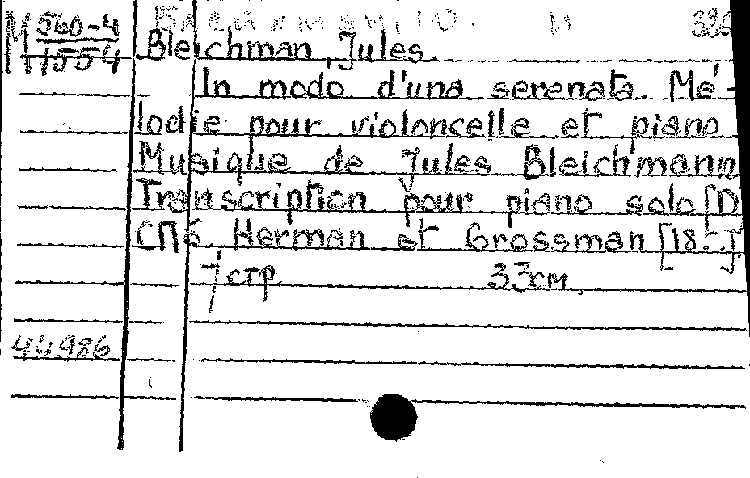 М 560-4 Блейхман, Ю. 
1554 Bleichman, Jules.
In modo d'una serenata. Mé-
lodie pour violoncelle et piano
Musique de Jules Bleichmann
Transcription pour piano solo [D
СПб Herman et Grossman [18--]
7 стр 33 см.
44986